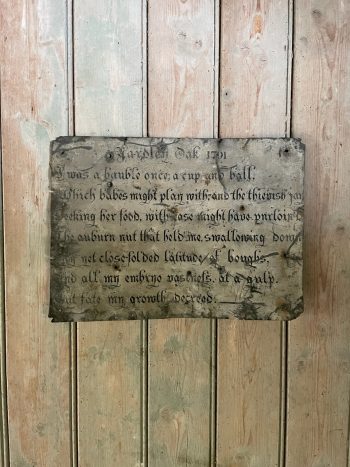 Yardley Oak 1791
I was a bauble once, a cup and ball,
Which babes might play with; and the thievish jay
Seeking her food, with ease might have purloin'd
The auburn nut that held me, swallowing down
My yet close-folded latitude of boughs
And all my embryo vastness, at a gulp.
But fate my growth decreed.